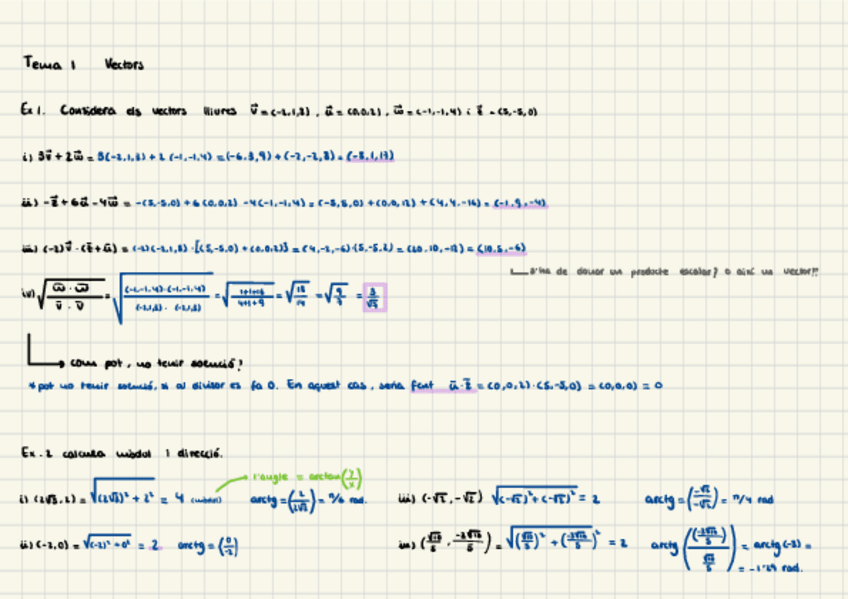 Tema 1 Vectors
Ex 1. Considera els vectors lliures v⃗ = (-2,1,3), u⃗ = (0,0,2), w⃗ = (-1,-1,4) i z⃗ = (5,-5,0)
i) 3v⃗ + 2w⃗ = 3(-2,1,3) + 2 (-1,-1,4) = (-6,3,9) + (-2,-2,8) = (-8,1,17)
ii) -z⃗ + 6u⃗ - 4w⃗ = -(5,-5,0) + 6 (0,0,2) - 4(-1,-1,4) = (-5,5,0) + (0,0,12) + (4,4,-16) = (-1,9,-4)
iii) (-2)v⃗ · (z⃗ + u⃗) = (-2)(-2,1,3) · [(5,-5,0) + (0,0,2)] = (4,-2,-6)·(5,-5,2) = (20,10,-12) = (10,5,-6)
s'ha de donar un producte escalar? o així un vector?!
iv) √(w⃗ · w⃗ / v⃗ · v⃗) = √((-1,-1,4)·(-1,-1,4) / (-2,1,3) · (-2,1,3)) = √(1+1+16 / 4+1+9) = √(18/14) = √(9/7) = 3/√7
com pot, no tenir solució?
* pot no tenir solució, si al divisor es fa 0. En aquest cas, seria fent u⃗·z⃗ = (0,0,2)·(5,-5,0) = (0,0,0) = 0
Ex. 2 calcula mòdul i direcció.
l'angle = arctan(y/x)
i) (2√3, 2) = √((2√3)² + 2²) = 4 (mòdul) arctg = (2/2√3) = π/6 rad.
iii) (-√2, -√2) √((-√2)² + (-√2)²) = 2 arctg = (-√2/-√2) = π/4 rad
ii) (-2,0) = √((-2)² + 0²) = 2 arctg = (0/-2)
iv) (√10/5, -3√10/5) = √((√10/5)² + (-3√10/5)²) = 2 arctg ((-3√10/5)/(√10/5)) = arctg (-3) =
= -1'249 rad.